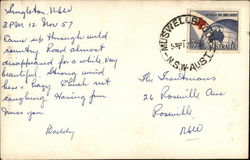 Singleton, NSW
3PM 12 Nov 57
Came up through wild
country. Road almost
disappeared for a while. Very
beautiful. Strong wind
here & hazy. Still not
laughing. Having fun.
Miss you
Daddy
MUSWELLBROOK
N.S.W-AUST
AUSTRALIA
The Troutmans
26 Roseville Ave
Roseville
NSW